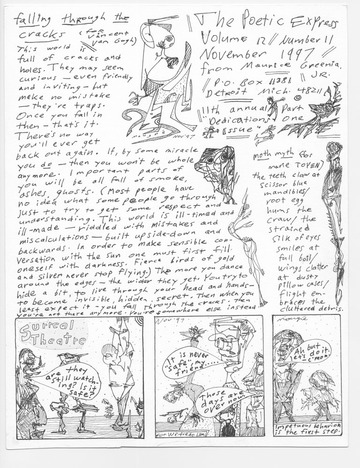 falling through the
cracks (for Vincent
van Gogh)
This world is
full of cracks and
holes. They may seem
curious — even friendly
and inviting — but
make no mistake
— they're traps.
Once you fall in
them — that's it.
There's no way
you'll ever get
back out again. If, by some miracle
you do — then you won't be whole
anymore. Important parts of
you will be all full of smoke,
ashes, ghosts. (Most people have
no idea what some people go through
just to try to get some respect and
understanding. This world is ill-timed and
ill-made — riddled with mistakes and
miscalculations — built upside down and
backwards. In order to make sensible con-
versation with the sun one must first fill
oneself with darkness. Fierce birds of gold
and silver never stop flying.) The more you dance
around the edges — the wider they get. You try to
hide a bit, to live through your head and hands —
to become invisible, hidden, secret. Then when you
least expect it — you fall through the crack; then
you're not there anymore. You're somewhere else instead
The Poetic Express
Volume 12 // Number 11
November 1997
from Maurice Greenia,
Jr.
P.O. Box 11381
Detroit Mich. 48211
11th annual
Dedications Part
One
Issue
moth myth (for
more
the teeth clear at
scissor blut
mandible/
root egg
hums the
craw/ the
strained
silk offers
smiles at
full boll/
wings clatter
at dusty
pillow cases/
flight em-
broiders the
cluttered debris.
Surreal
Theatre
Are they
still watch-
ing? Is it
safe?
Nov 97
It is never
safe, my
friend...
Those
days are
over...
Ah but
they do it
so
impetuous behavior
is the first step.